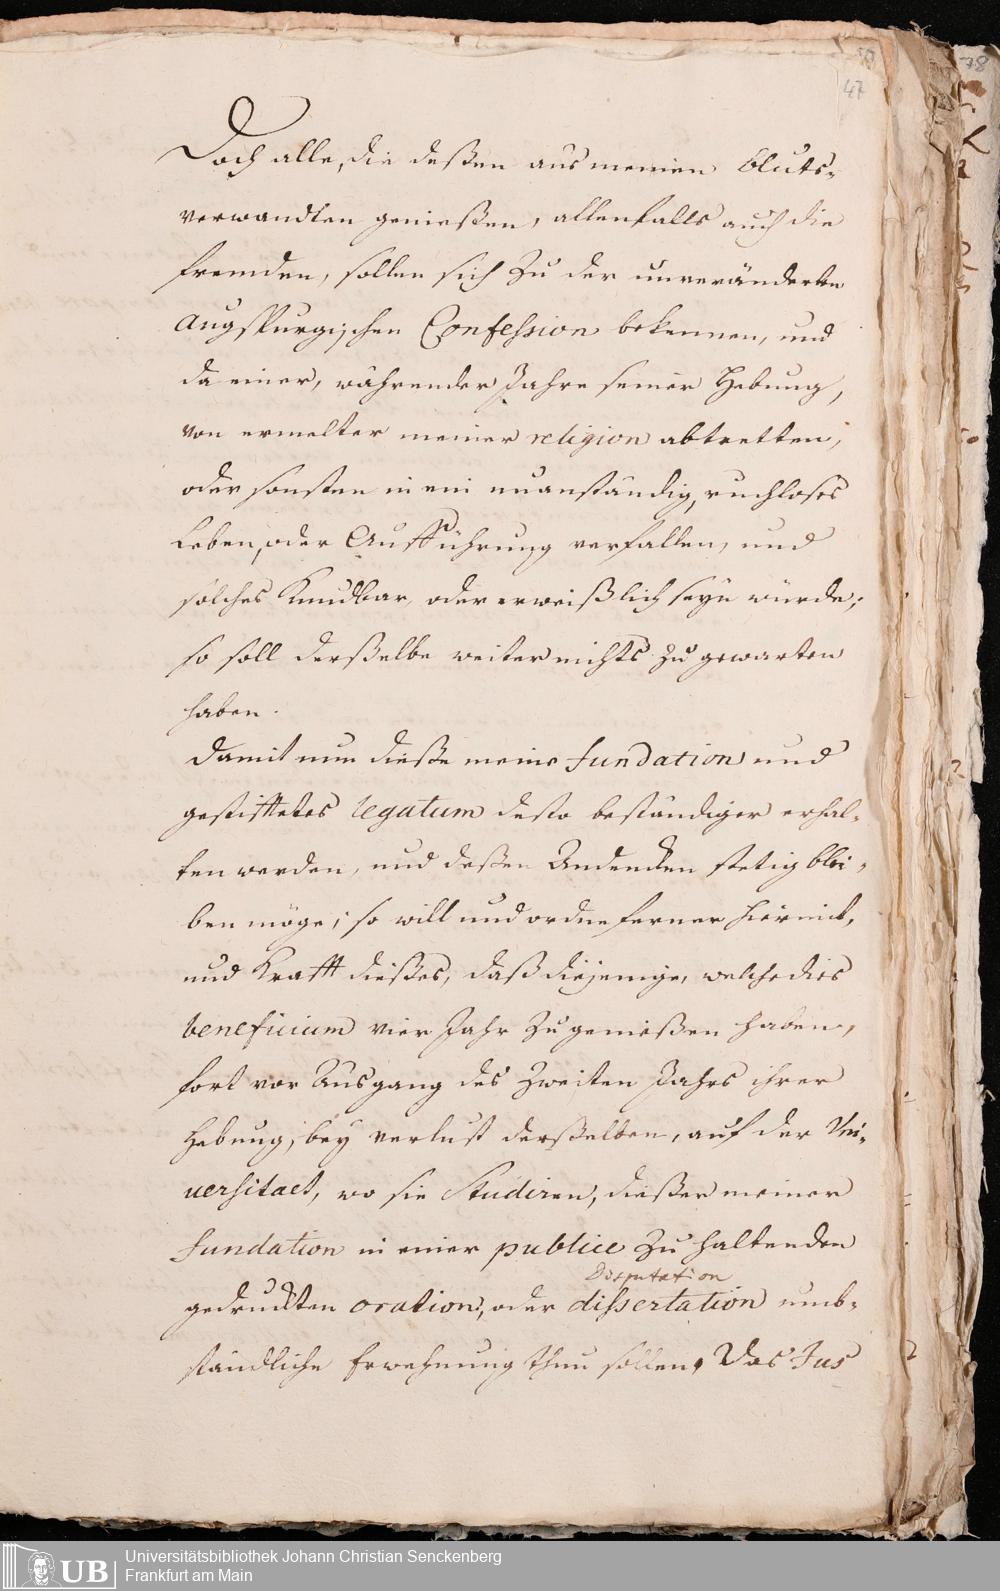 47
78
Doch alle, die deßen aus meinen Bluts-
verwandten genießen, allenfalls auch die
fremden, sollen sich zu der unveränderten
Augspurgischen Confession bekennen, und
da einer, währender Jahre seiner Hebung,
von ermelter meiner religion abtretten,
oder sonsten in ein unanständig, ruchloses
Leben, oder Aufführung verfallen, und
solches Kundbar, oder erweißlich seyn würde;
so soll derßelbe weiter nichts zu gewarten
haben.
Damit nun dieße meine fundation und
gestifftetes legatum desto beständiger erhal-
ten werden, und deßen Andencken stetig blei-
ben möge; so will und ordne ferner hiermit,
und Krafft dießes, daß diejenige, welche dies
beneficium vier Jahr zu genießen haben,
fort vor Ausgang des zweiten Jahrs ihrer
Hebung, bey verlust derßelben, auf der Uni-
versitaet, wo sie Studiren, dießer meiner
fundation in einer publice zu haltenden
Disputation
gedruckten oration, oder dissertation umb-
ständliche Erwehnung thun sollen, Das Jus
UB
Universitätsbibliothek Johann Christian Senckenberg
Frankfurt am Main